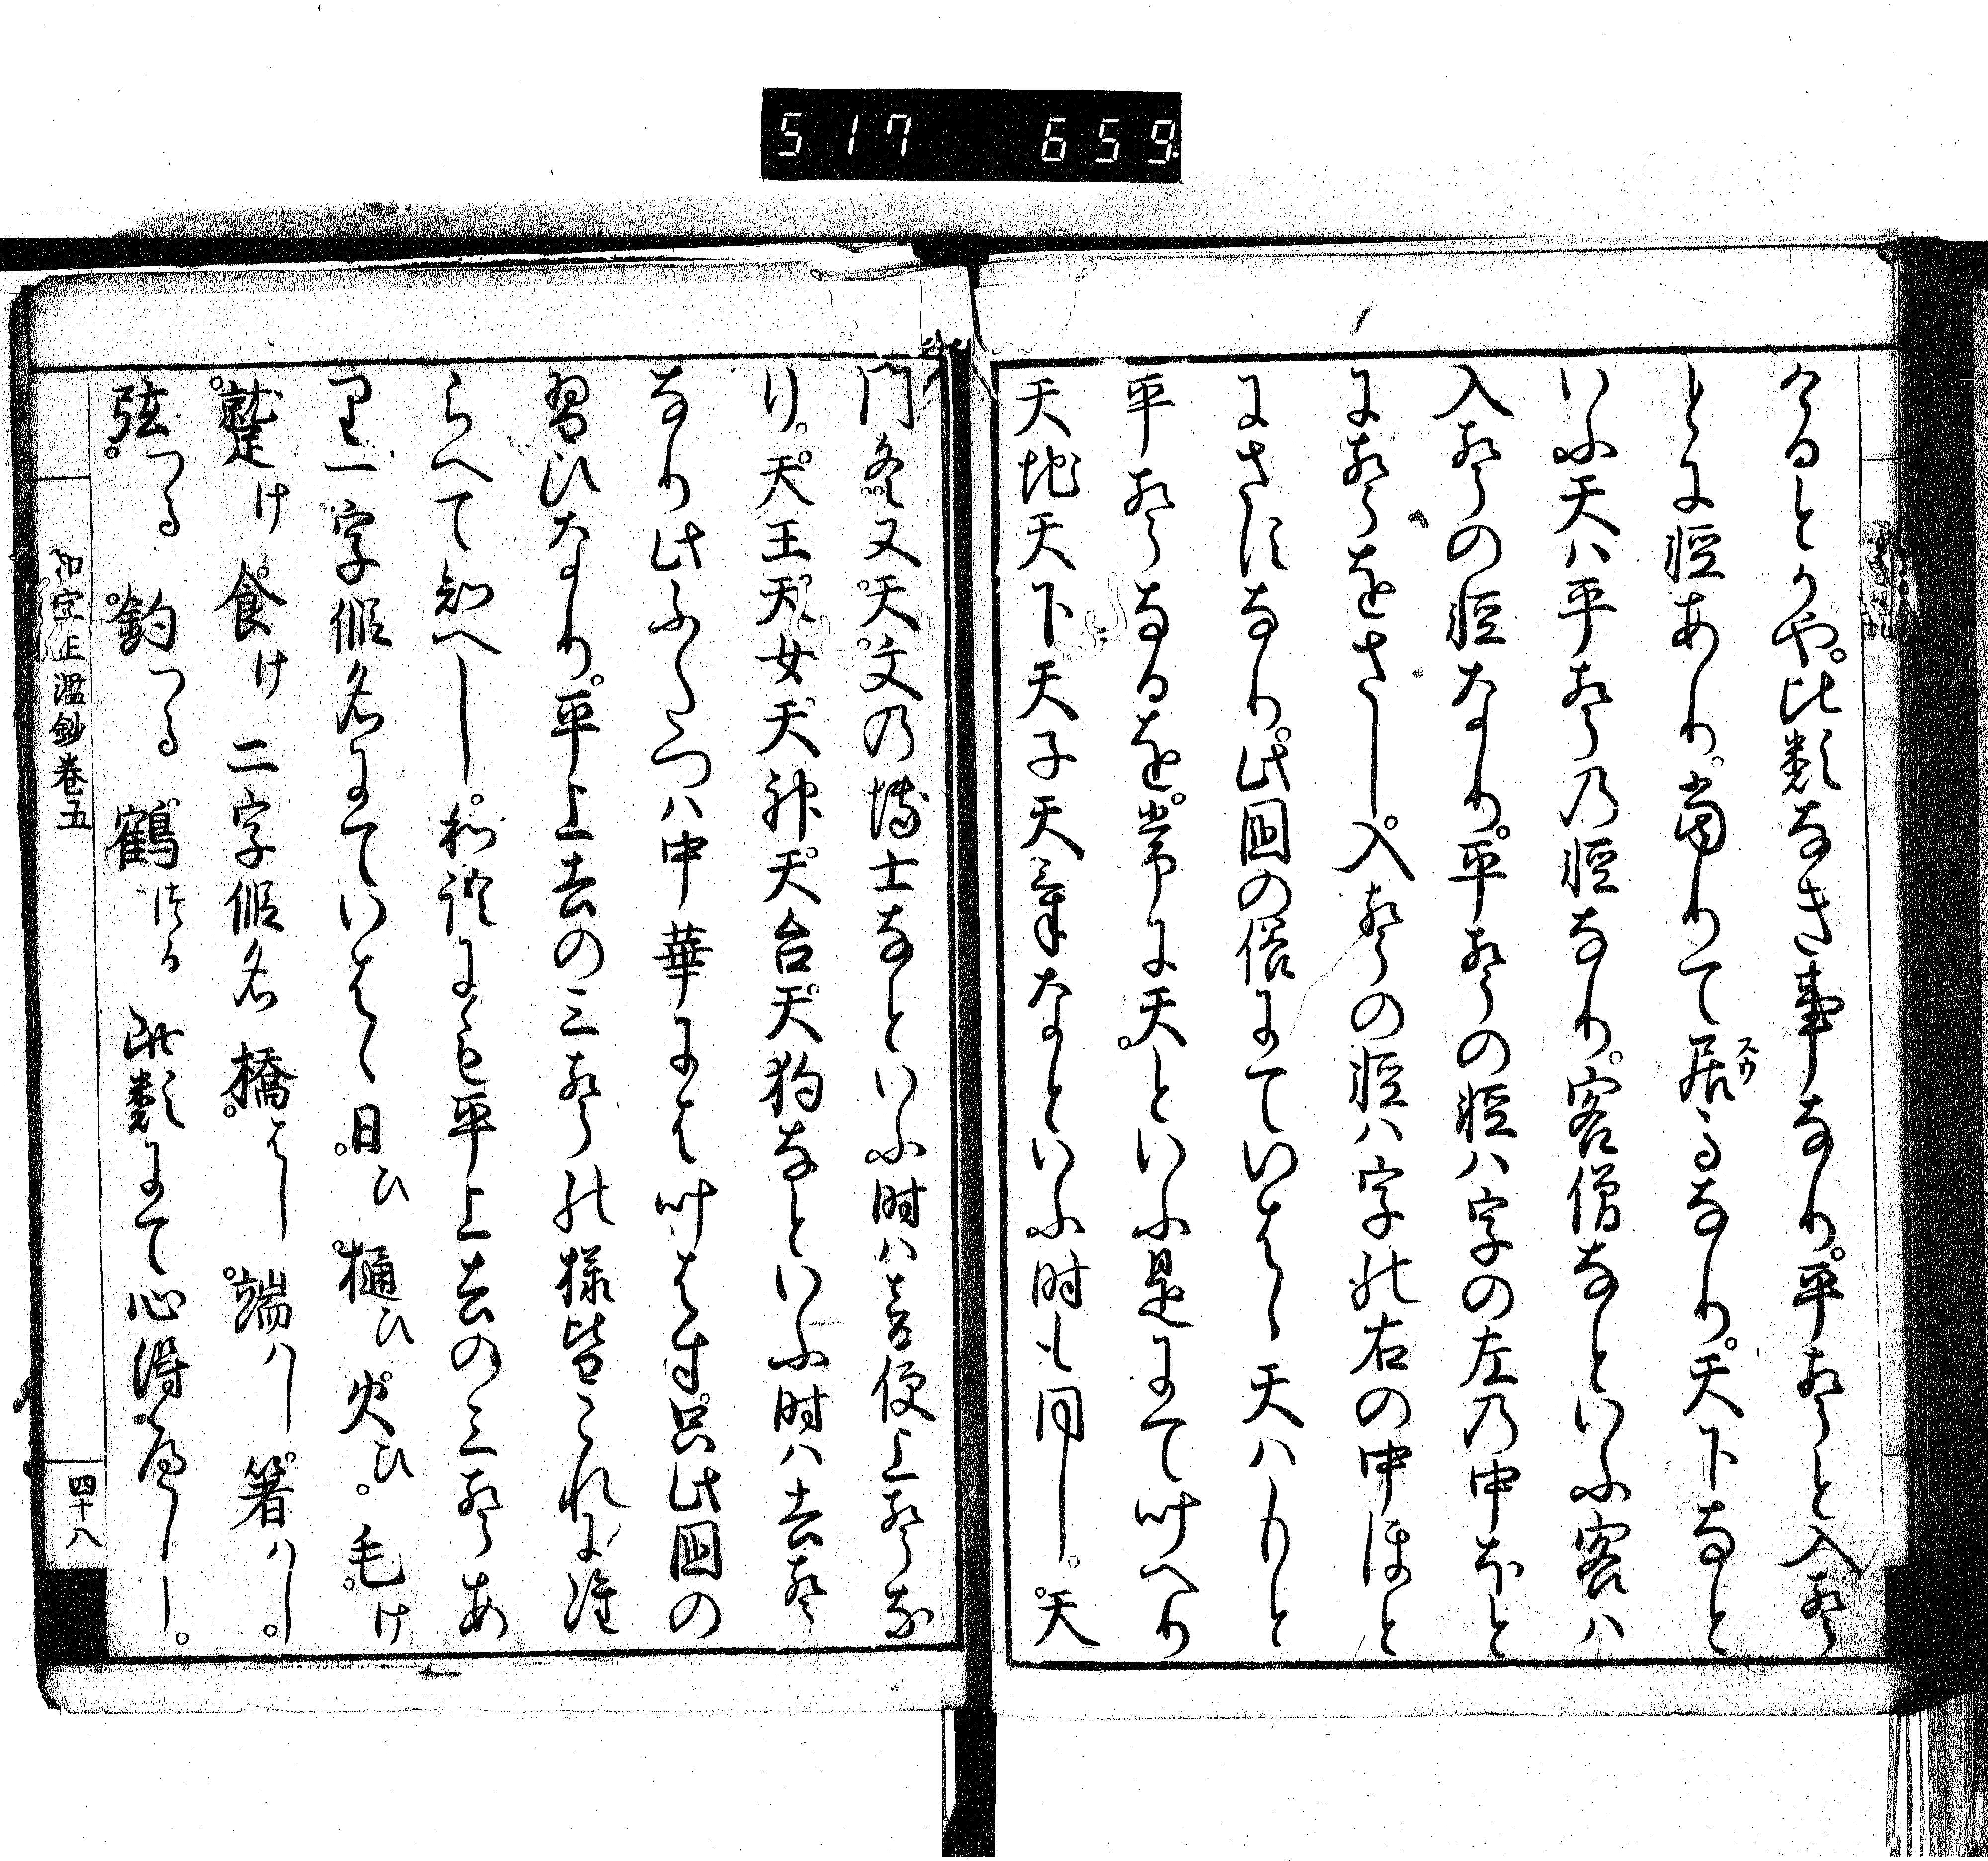 517 659
けるとかや。此類なき事なり。平声と入声
とに軽あり。常(當)りて居るなり。天下なと
いふ天ハ平声乃軽なり。客僧なといふ客ハ
入声の軽なり。平声の軽ハ字の左乃中ほと
に声をさし。入声の軽ハ字の右の中ほと
にさすなり。此国の俗にていはゝ天ハもと
平声なるを。常に天といふ是にて叶へり
天地天下天子天気なといふ時も同し。天
門冬又天文の博士なといふ時ハ音便上声な
り。天王天女天神天台天狗なといふ時ハ去声
なり此ふたつハ中華にはかなはす。只此国の
習ひなり。平上去の三声の様皆これに准
らへて知へし。和語にも平上去の三声あ
り一字仮名にていはゝ日ひ樋ひ火ひ。毛け
蹴け食け二字仮名橋はし端ハし箸ハし。
弦つる釣つる鶴つる此類にて心得へし。
和字正濫鈔巻五
四十八